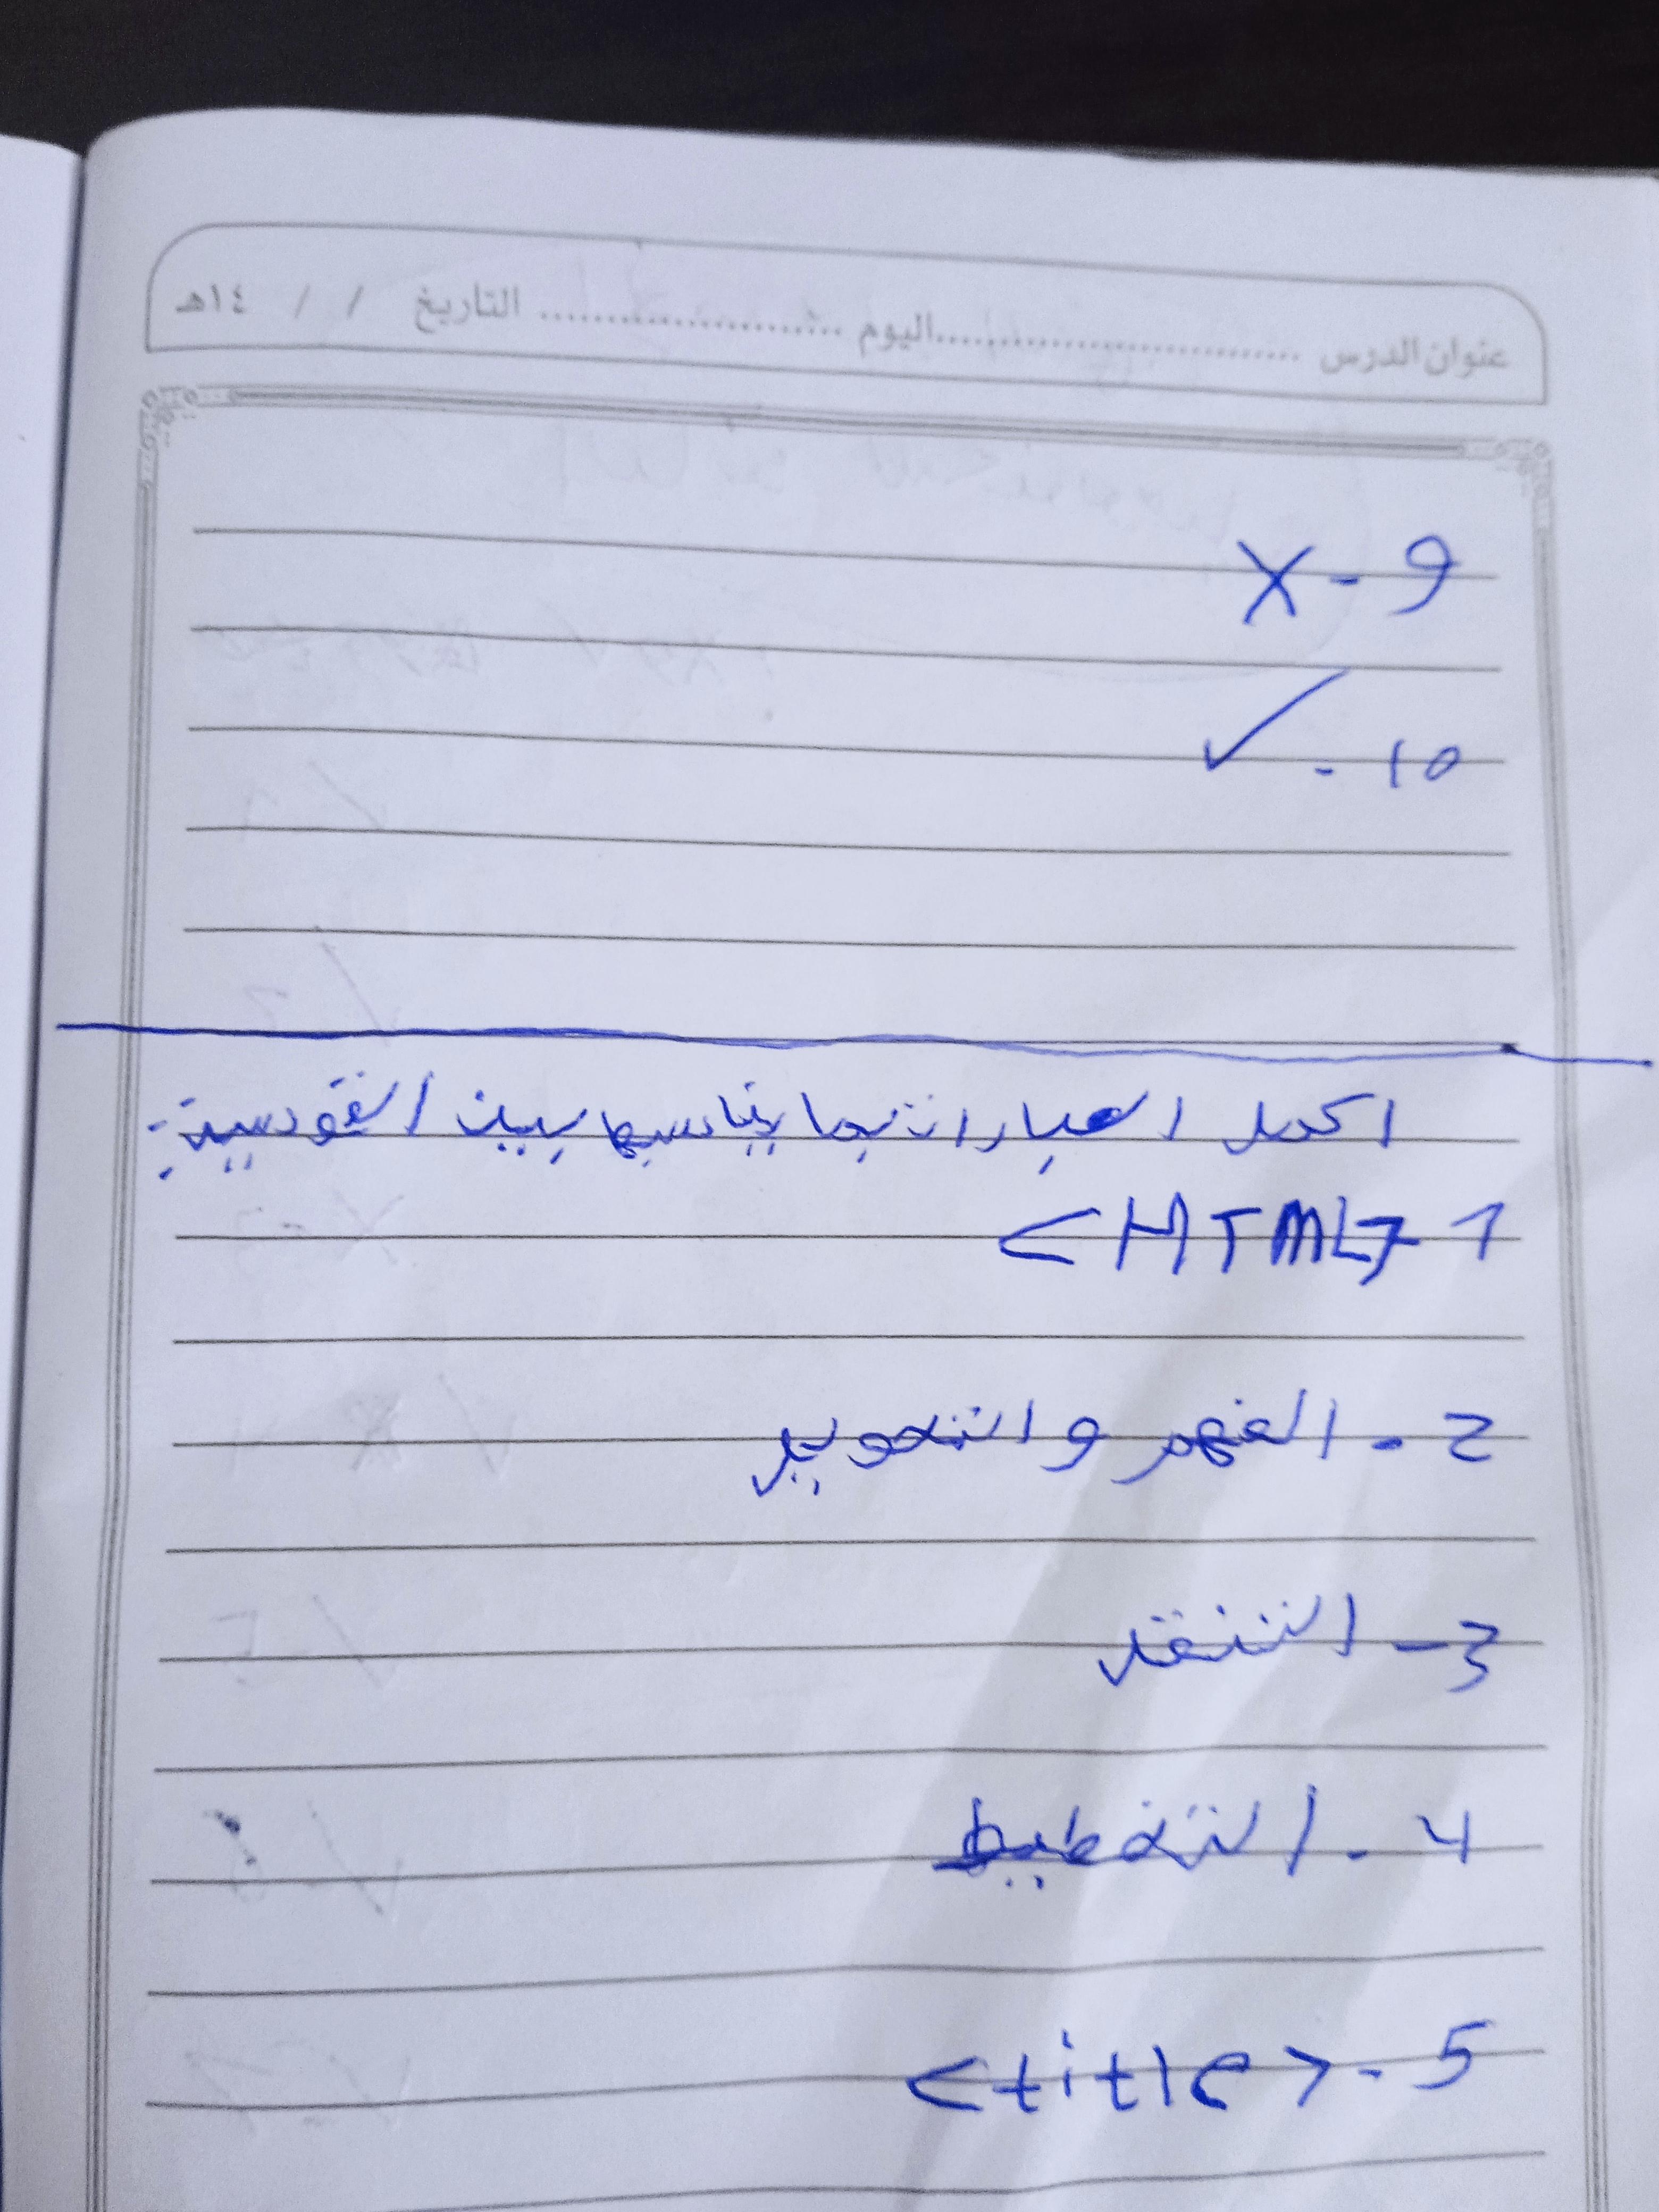 عنوان الدرس ........................ اليوم ........................ التاريخ / / ١٤هـ
9 - X
10 - ✓
اكمل العبارات بما يناسبها بين القوسين :-
1 - <HTML>
2 - الفهم والتحويل
3 - النقد
4 - التخطيط
5 - <title>